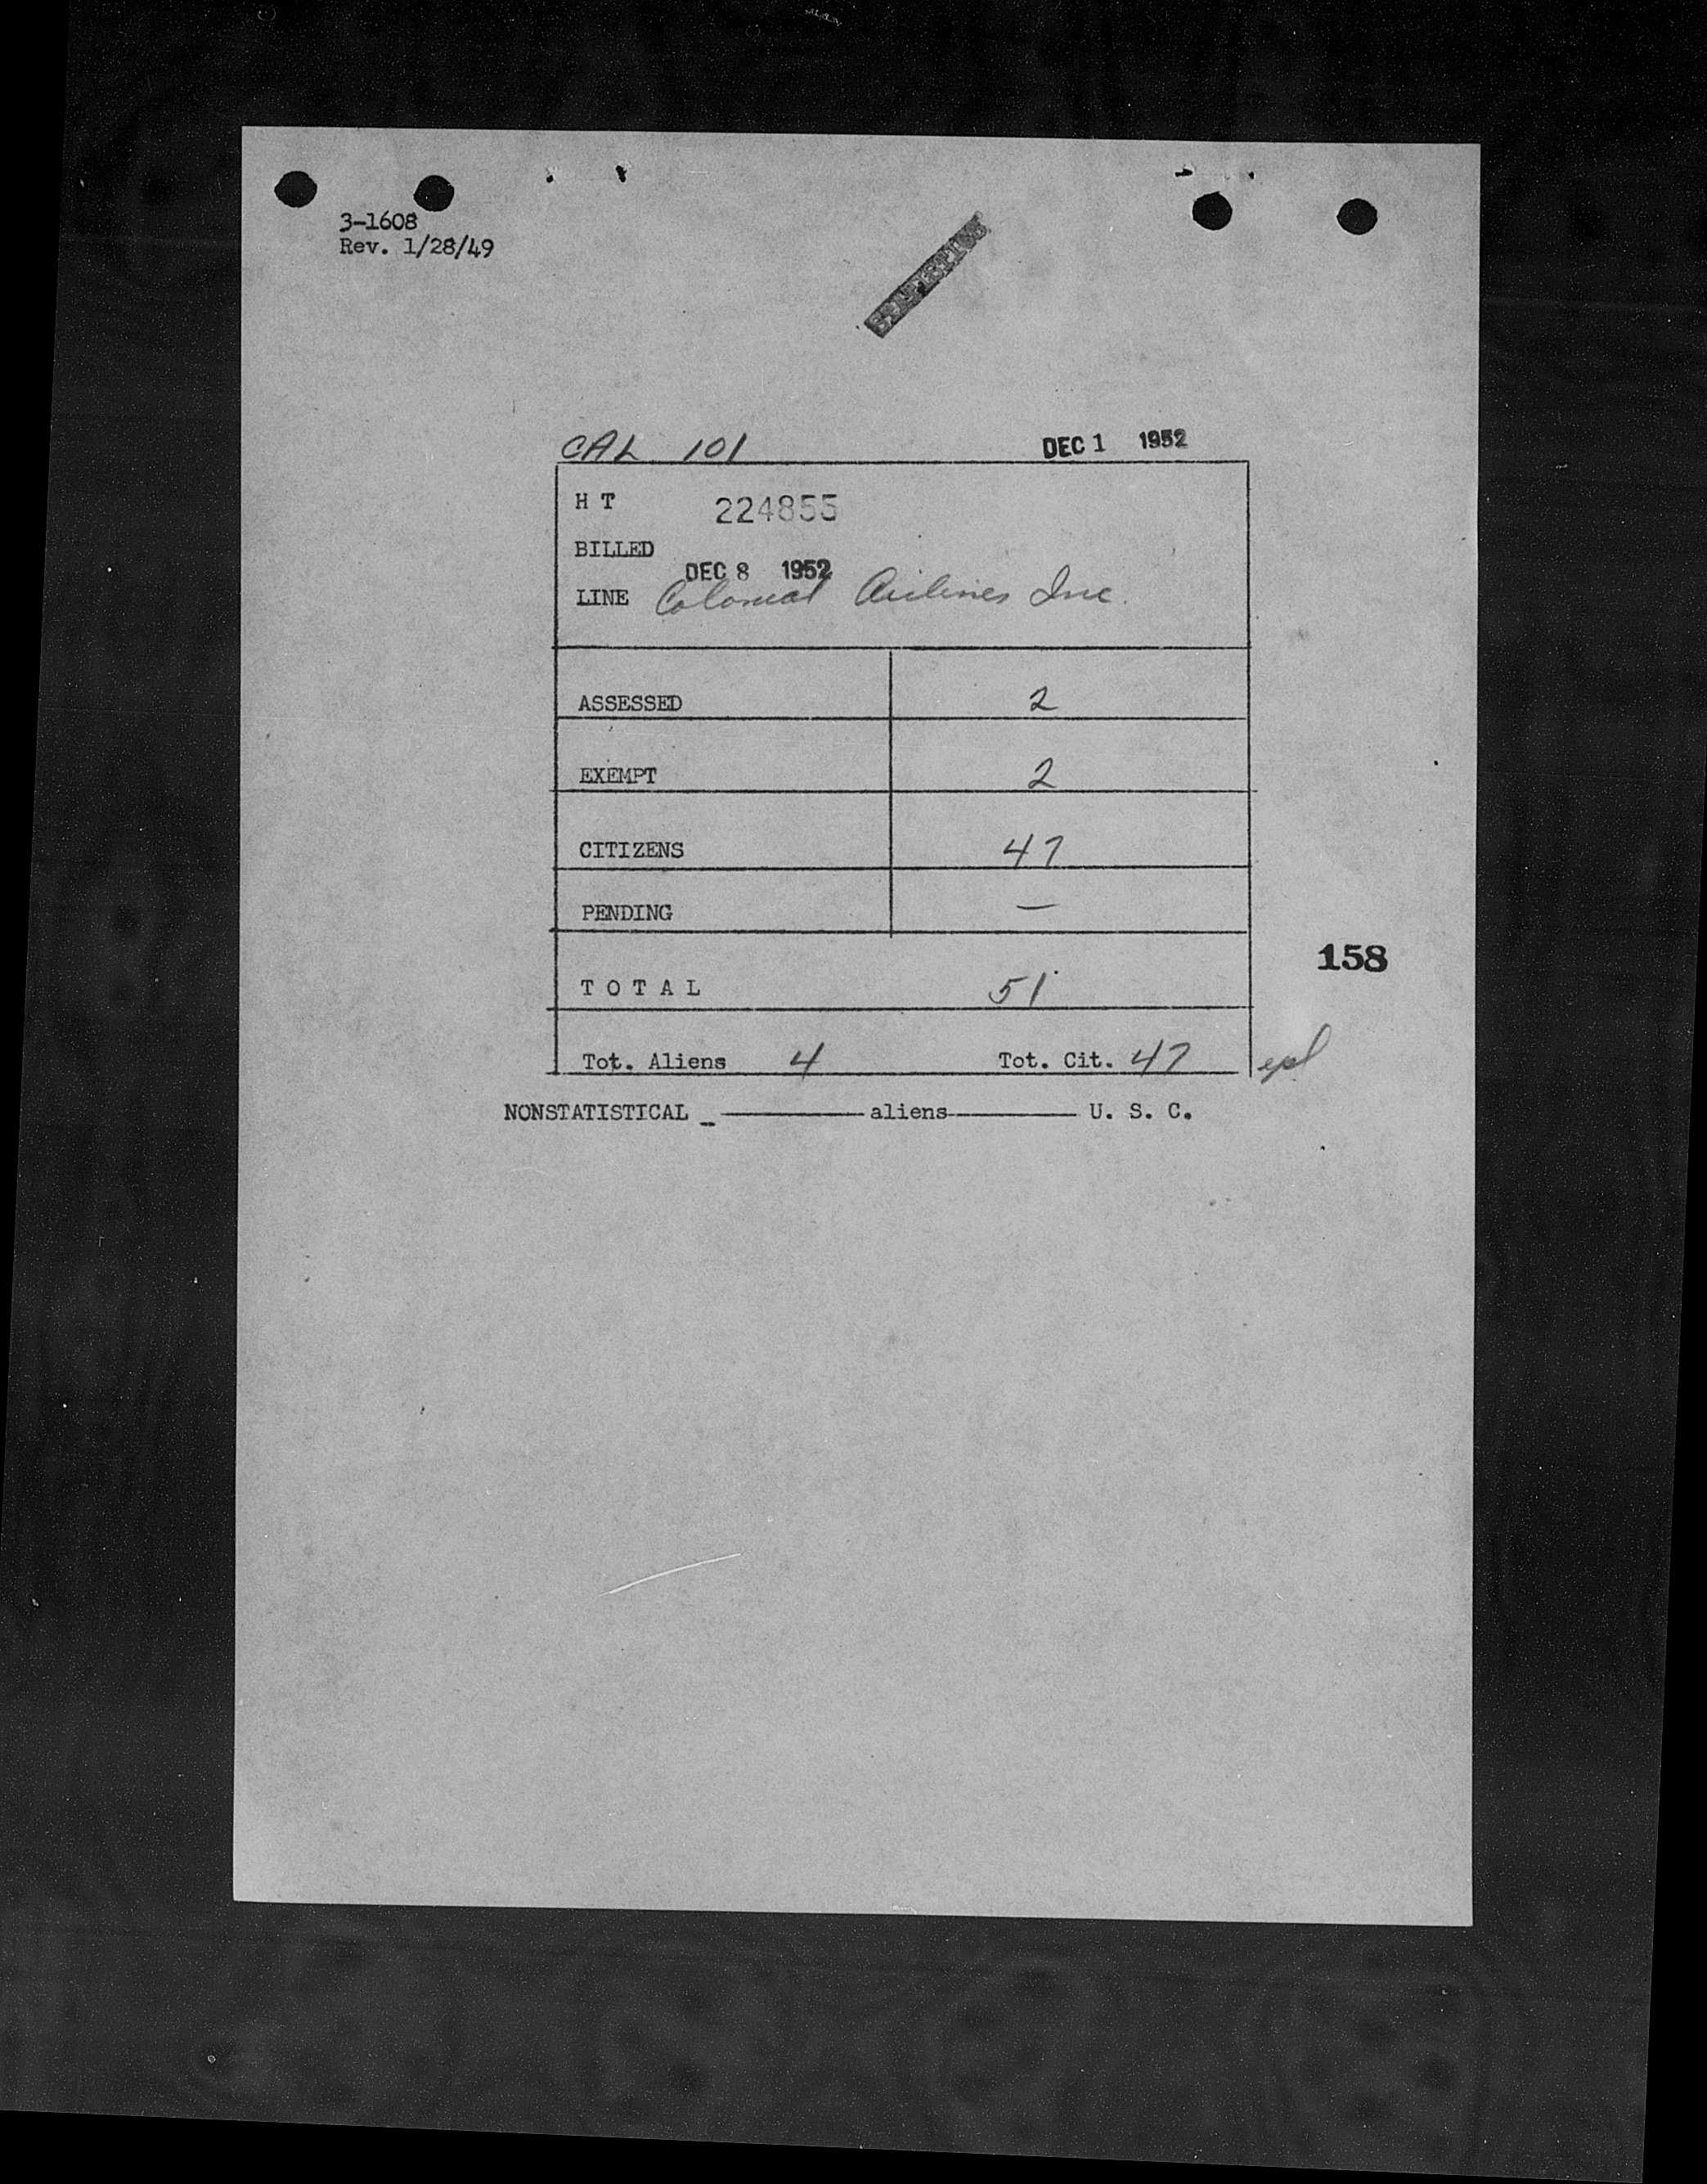 3-1608
Rev. 1/28/49
STATISTICS
CAL 101 DEC 1 1952
H T 224855
BILLED
DEC 8 1952
LINE Colonial Airlines Inc.
ASSESSED 2
EXEMPT 2
CITIZENS 47
PENDING —
158
T O T A L 51
Tot. Aliens 4 Tot. Cit. 47
NONSTATISTICAL _ aliens U. S. C.